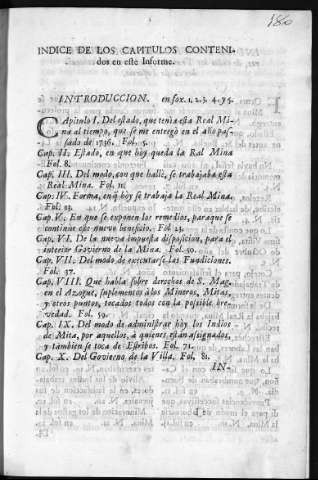 180
INDICE DE LOS CAPITULOS CONTENI-
dos en este Informe.
INTRODUCCION. en fox. 1. 2. 3. 4. y 5.
CApitulo I. Del estado, que tenia esta Real Mi-
na al tiempo, que se me entergò en el año pas-
sado de 1736. Fol. 5.
Cap. II: Estado, en que hoy queda la Ral Mina
Fol. 8.
Cap. III. Del modo, con que hallè, se trabajaba esta
Real Mina. Fol. 11.
Cap. IV. Forma, en q̃ hoy se trabaja la Real Mina.
Fol. 13.
Cap. V. En que se exponen los remedios, paraque se
continue este nuevo beneficio. Fol. 23.
Cap. VI. De la nueva impuesta disposicion, para el
interior Govierno de la Mina. Fol. 30.
Cap. VII. Del modo de executarse las Fundiciones.
Fol. 37.
Cap. VIII. Que habla sobre derechos de S. Mag.
en el Azogue, suplementos à los Mineros, Mitas,
y otros puntos, tocados todos con la possible bre-
vedad. Fol. 59.
Cap. IX. Del modo de administrar hoy los Indios
de Mita, por aquellos, à quienes estan assignados,
y tambien se toca de Estribos. Fol. 71.
Cap. X. Del Govierno de la Villa. Fol. 81.
IN-